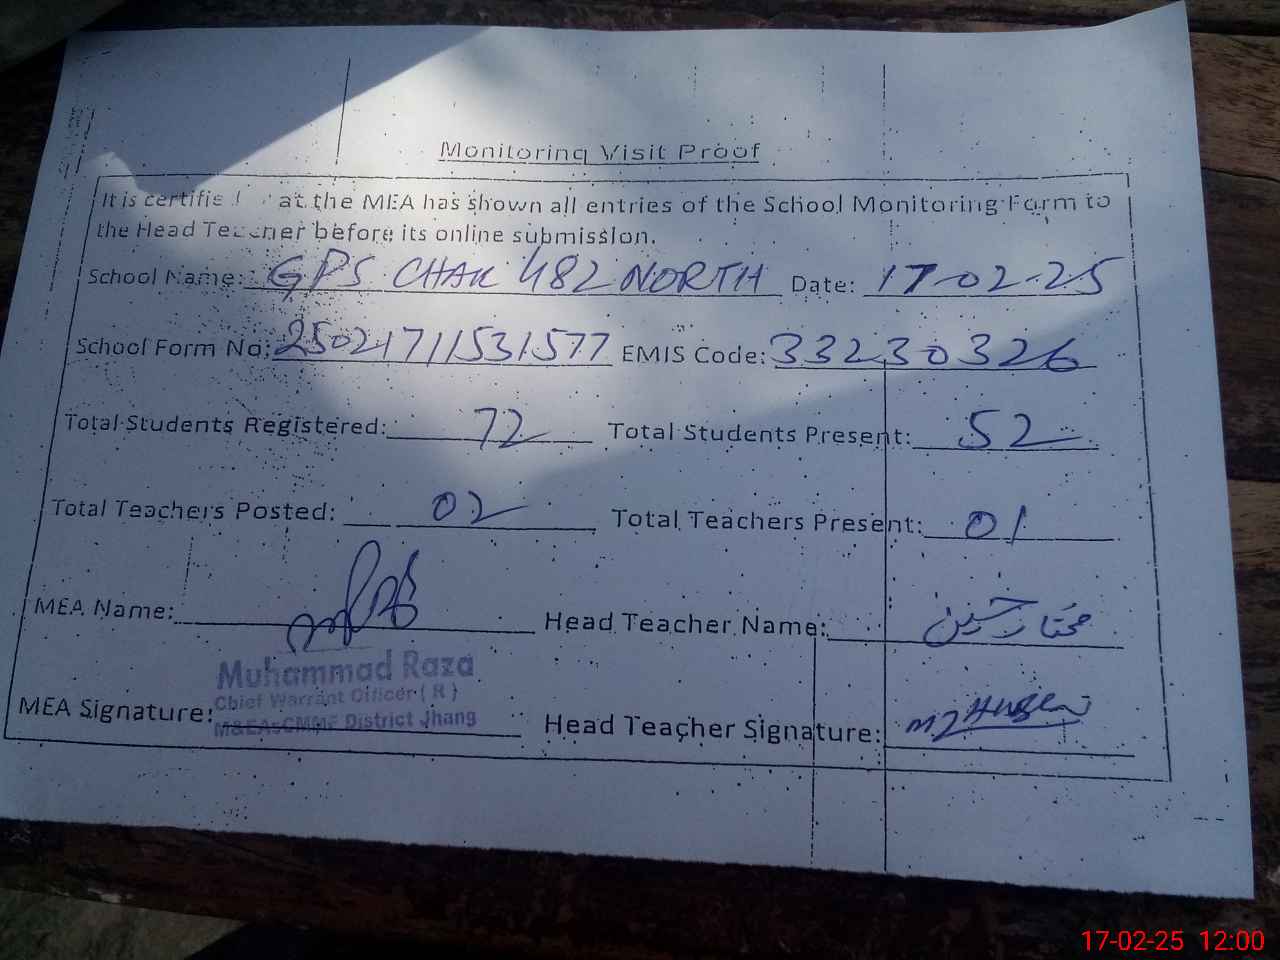 Monitoring Visit Proof
It is certified at the MEA has shown all entries of the School Monitoring Form to
the Head Teacher before its online submission.
School Name: GPS CHAK 482 NORTH Date: 17-02-25
School Form No: 25021711531577 EMIS Code: 33230326
Total Students Registered: 72 Total Students Present: 52
Total Teachers Posted: 02 Total Teachers Present: 01
MEA Name: Head Teacher Name: مختار حسین
Muhammad Raza
Chief Warrant Officer ( R )
MEA Signature: M&EAsCMMF District Jhang Head Teacher Signature:
17-02-25 12:00